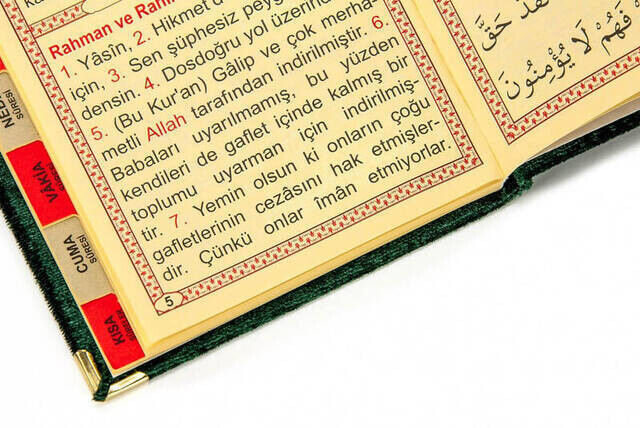 Rahman ve Rahîm
1. Yâsîn, 2. Hikmet
için, 3. Sen şüphesiz
densin. 4. Dosdoğru yol üzerinde
5. (Bu Kur'an) Gâlip ve çok merha-
metli Allah tarafından indirilmiştir. 6.
Babaları uyarılmamış, bu yüzden
kendileri de gaflet içinde kalmış bir
toplumu uyarman için indirilmiş-
tir. 7. Yemin olsun ki onların çoğu
gafletlerinin cezâsını hak etmişler-
dir. Çünkü onlar îmân etmiyorlar.
5
SÛRESİ
VÂKIA
SÛRESİ
CUMA
SÛRESİ
KISA
حَقَّ
فَهُمْ لَا يُؤْمِنُونَ